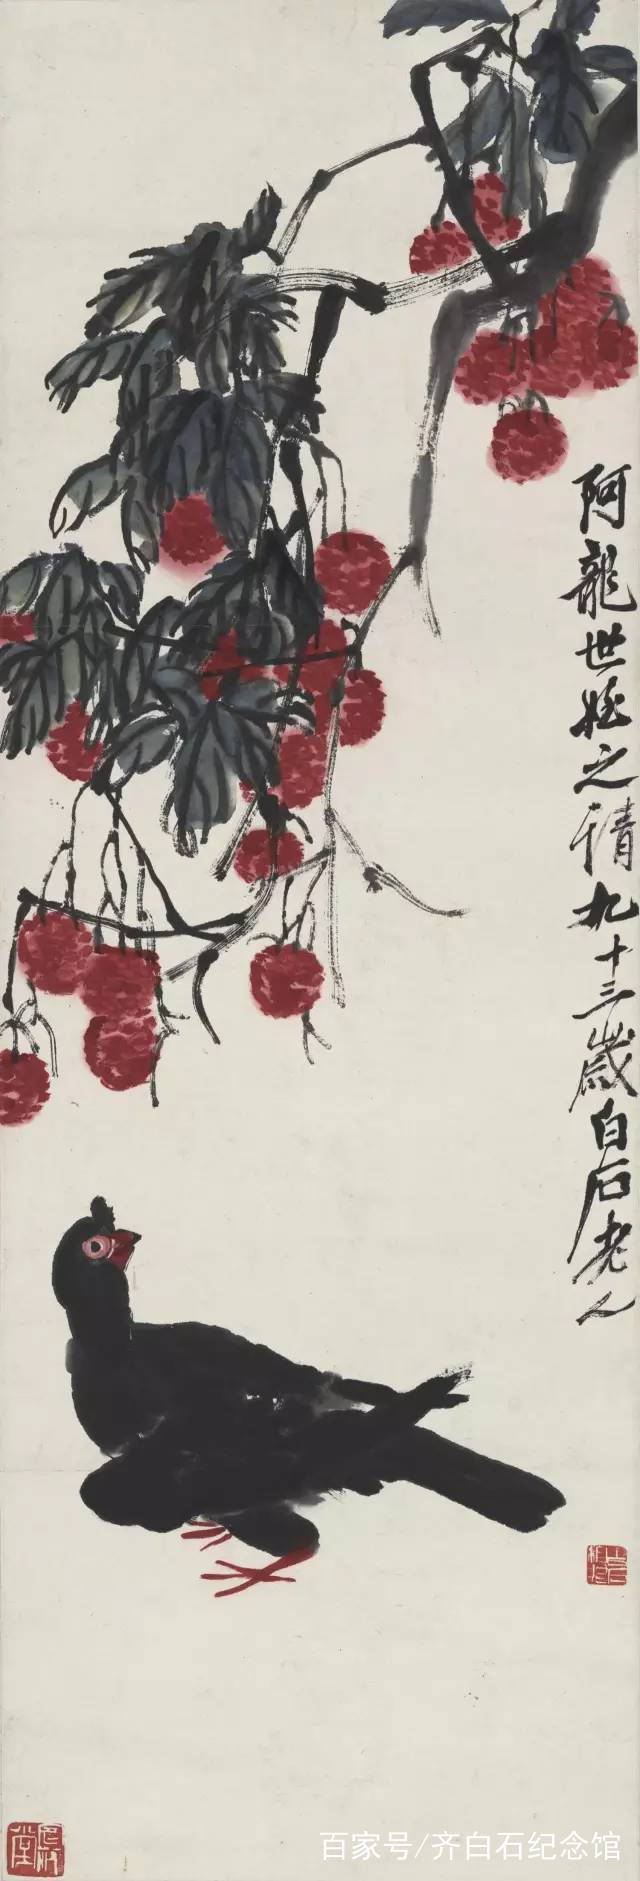 阿龍世姪之請九十三歲白石老人
百家号/齐白石纪念馆